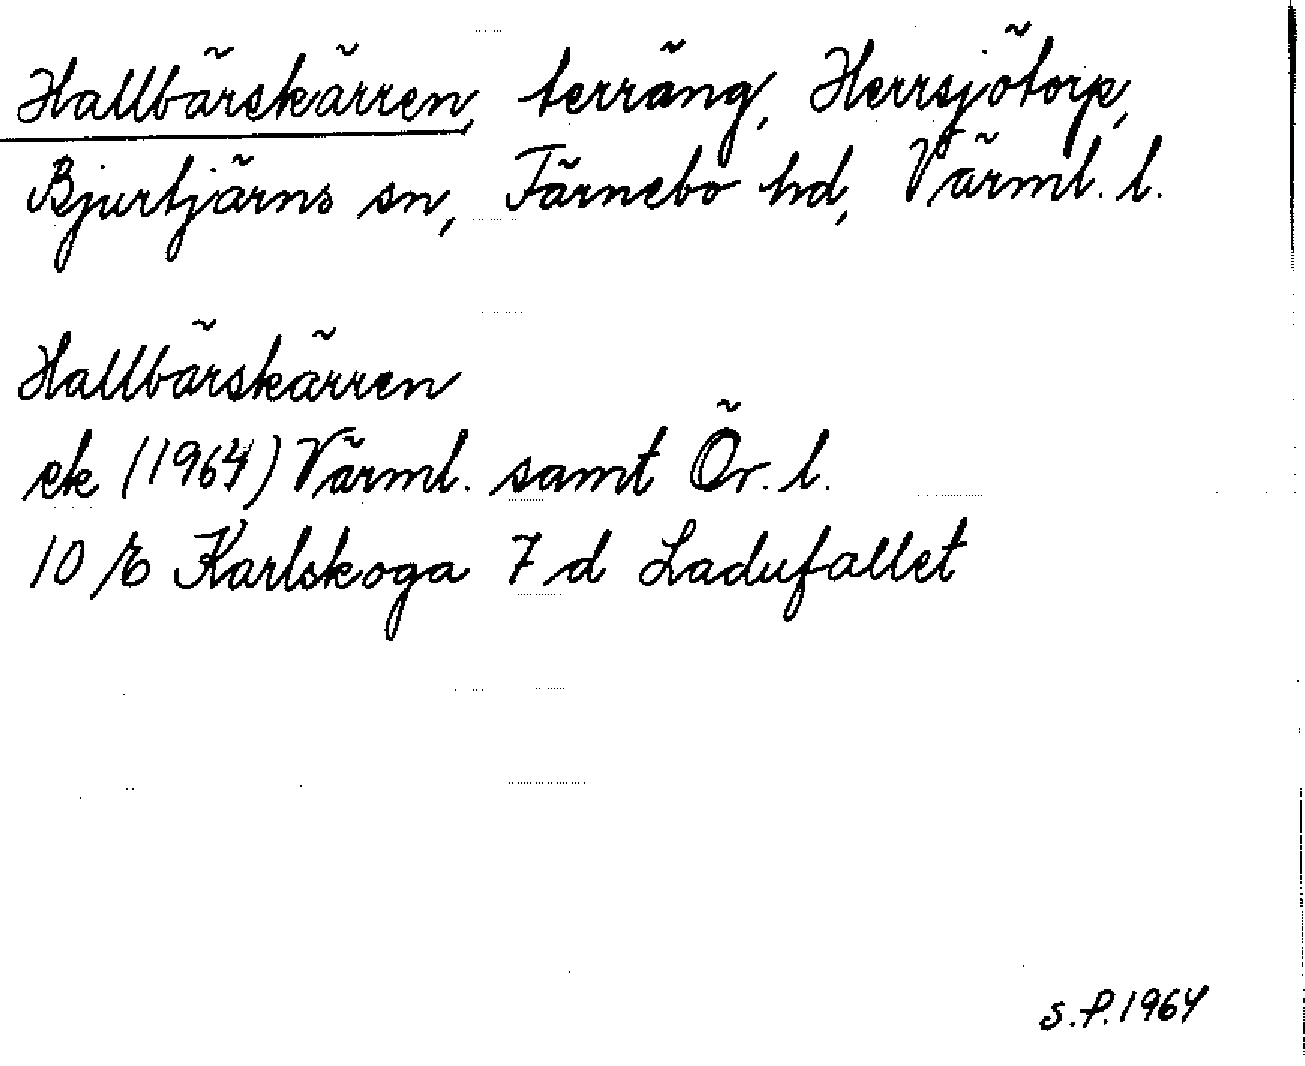 Hallbärskärren, terräng, Herrsjötorp,
Bjurtjärns sn, Färnebo hd, Värml. l.
Hallbärskärren
ek (1964) Värml. samt Ör. l.
10 E Karlskoga 7 d Ladufallet
S.P. 1964